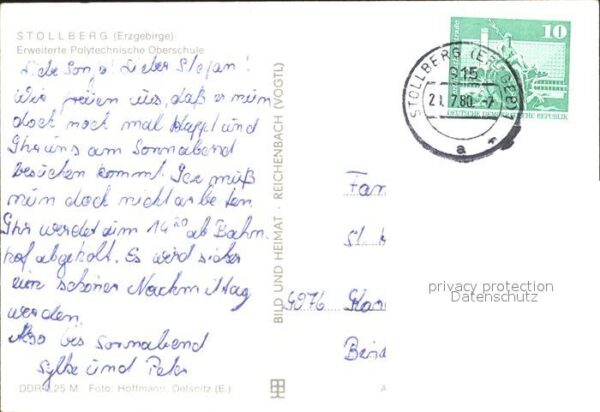 STOLLBERG (Erzgebirge)
Erweiterte Polytechnische Oberschule
Liebe Sonja! Lieber Stefan!
Wir freuen uns, daß es nun
doch noch mal klappt und
Ihr uns am Sonnabend
besuchen kommt. muß
nun doch nicht arbeiten
Ihr werdet um 14 20 ab Bahn-
hof abgeholt. Es wird sicher
ein schöner Nachmittag
werden.
Also bis Sonnabend
Sylke und Peter
DDR 0,25 M Foto: Hoffmann, Oelsnitz (E.)
BILD UND HEIMAT · REICHENBACH (VOGTL)
10
DEUTSCHE DEMOKRATISCHE REPUBLIK
STOLLBERG (ERZGEB)
915
21.7.80.-7
a
Fam
St.
privacy protection
Datenschutz
A